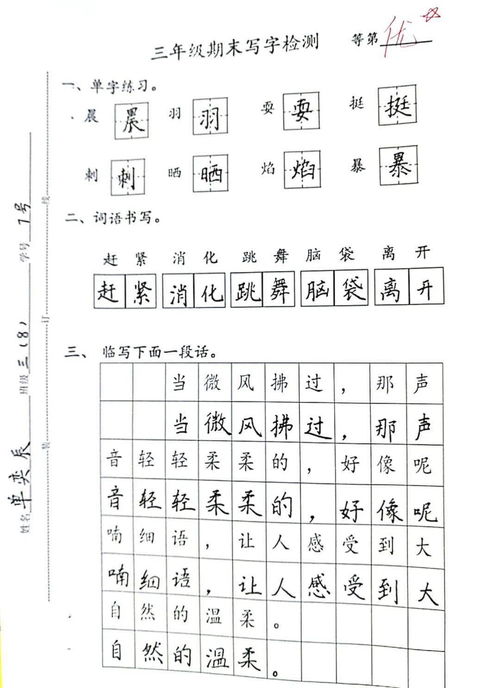 三年级期末写字检测 等第 优
一、单字练习。
晨 晨 羽 羽 耍 耍 挺 挺
刺 刺 晒 晒 焰 焰 暴 暴
二、词语书写。
赶 紧 消 化 跳 舞 脑 袋 离 开
赶 紧 消 化 跳 舞 脑 袋 离 开
三、临写下面一段话。
当微风拂过，那声
当微风拂过，那声
音轻轻柔柔的，好像呢
音轻轻柔柔的，好像呢
喃细语，让人感受到大
喃细语，让人感受到大
自然的温柔。
自然的温柔。
姓名 单奕辰 班级 三(8) 学号 7号
装 订 线